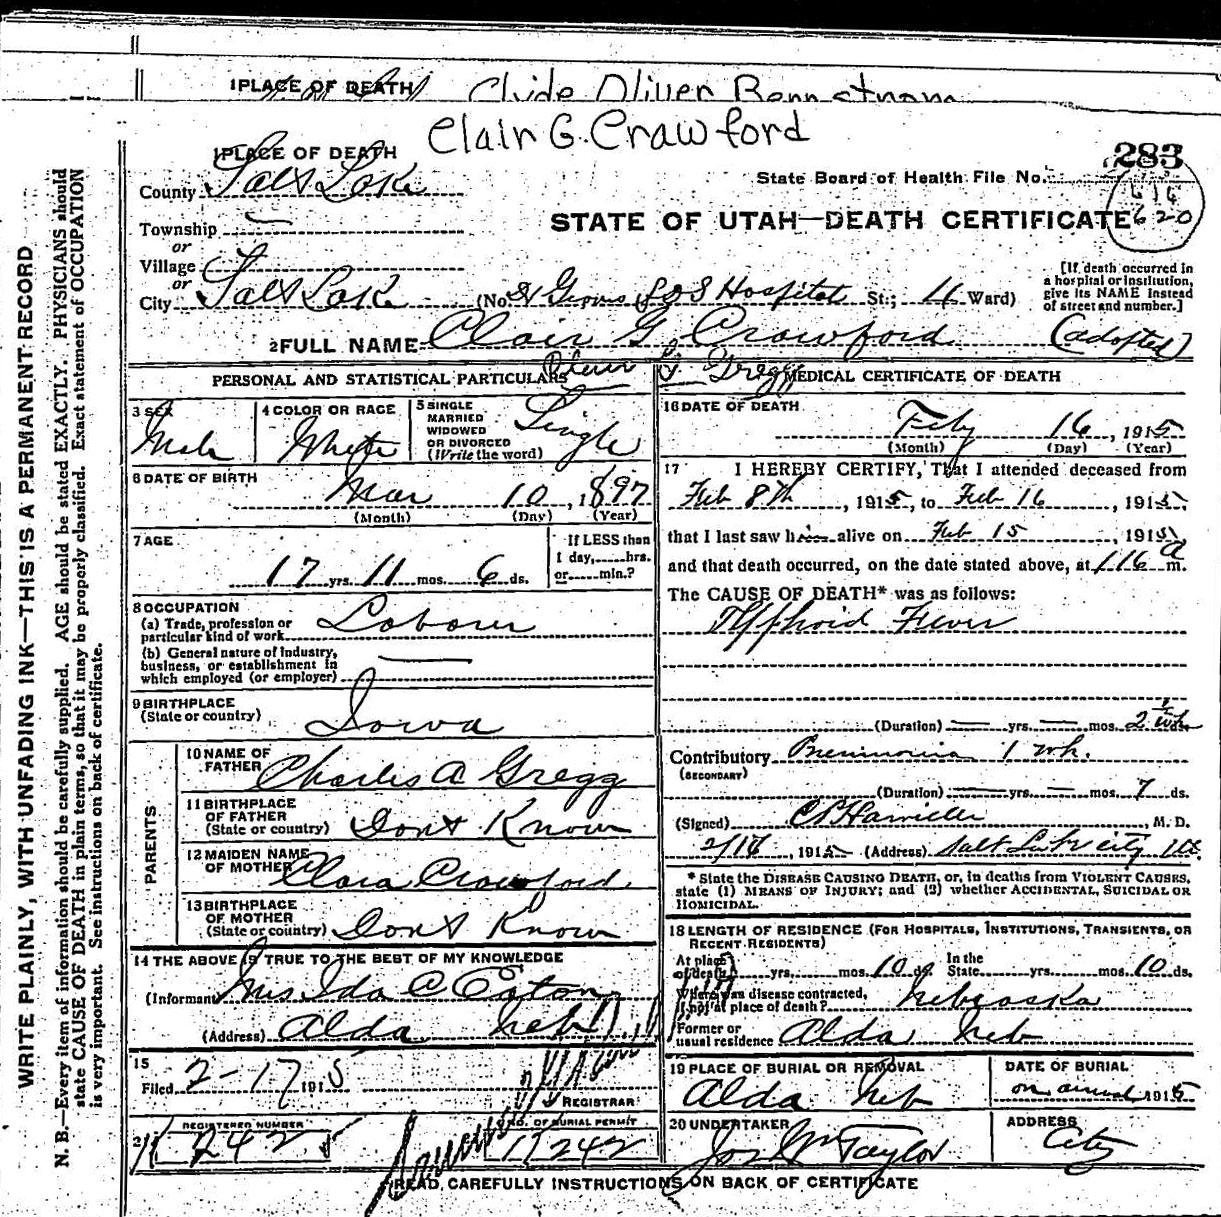 1 PLACE OF DEATH Clyde Oliver
Clair G. Crawford
1 PLACE OF DEATH
283
County Salt Lake
State Board of Health File No.
616
620
Township —
STATE OF UTAH—DEATH CERTIFICATE
or
Village
or
City Salt Lake (No. L D S Hospital St.; 4 Ward)
[If death occurred in a hospital or institution, give its NAME instead of street and number.]
2 FULL NAME Clair G. Crawford (adopted)
Clair G. Gregg
PERSONAL AND STATISTICAL PARTICULARS
3 SEX Male
4 COLOR OR RACE White
5 SINGLE MARRIED WIDOWED OR DIVORCED (Write the word) Single
6 DATE OF BIRTH Mar 10, 1897
(Month) (Day) (Year)
7 AGE 17 yrs. 11 mos. 6 ds.
If LESS than 1 day,......hrs. or......min.?
8 OCCUPATION
(a) Trade, profession or particular kind of work Laborer
(b) General nature of industry, business, or establishment in which employed (or employer) —
9 BIRTHPLACE
(State or country) Iowa
PARENTS
10 NAME OF FATHER Charles A Gregg
11 BIRTHPLACE OF FATHER
(State or country) Dont Know
12 MAIDEN NAME OF MOTHER Clara Crawford
13 BIRTHPLACE OF MOTHER
(State or country) Dont Know
14 THE ABOVE IS TRUE TO THE BEST OF MY KNOWLEDGE
(Informant) Mrs Ida C Eaton
(Address) Alda Neb
15
Filed 2-17 1915
REGISTRAR
REGISTERED NUMBER
NO. OF BURIAL PERMIT
11242
MEDICAL CERTIFICATE OF DEATH
16 DATE OF DEATH
Feby 16, 1915
(Month) (Day) (Year)
17 I HEREBY CERTIFY, That I attended deceased from
Feb 8th, 1915, to Feb 16, 1915,
that I last saw him alive on Feb 15, 1915,
and that death occurred, on the date stated above, at 116 a m.
The CAUSE OF DEATH* was as follows:
Typhoid Fever
(Duration) — yrs. — mos. 2 1/2 wk
Contributory Pneumonia 1 wk.
(SECONDARY)
(Duration) — yrs. — mos. 7 ds.
(Signed) M. D.
2/16, 1915 (Address) Salt Lake City Ut.
* State the DISEASE CAUSING DEATH, or, in deaths from VIOLENT CAUSES, state (1) MEANS OF INJURY; and (2) whether ACCIDENTAL, SUICIDAL OR HOMICIDAL.
18 LENGTH OF RESIDENCE (FOR HOSPITALS, INSTITUTIONS, TRANSIENTS, OR RECENT RESIDENTS)
At place of death yrs. mos. 10 ds. In the State yrs. mos. 10 ds.
Where was disease contracted, if not at place of death? Nebraska
Former or usual residence Alda Neb
19 PLACE OF BURIAL OR REMOVAL
Alda Neb
DATE OF BURIAL
on arrival 1915
20 UNDERTAKER
Jos Wm Taylor
ADDRESS
City
READ CAREFULLY INSTRUCTIONS ON BACK OF CERTIFICATE
WRITE PLAINLY, WITH UNFADING INK—THIS IS A PERMANENT RECORD
N. B.—Every item of information should be carefully supplied. AGE should be stated EXACTLY. PHYSICIANS should
state CAUSE OF DEATH in plain terms, so that it may be properly classified. Exact statement of OCCUPATION
is very important. See instructions on back of certificate.